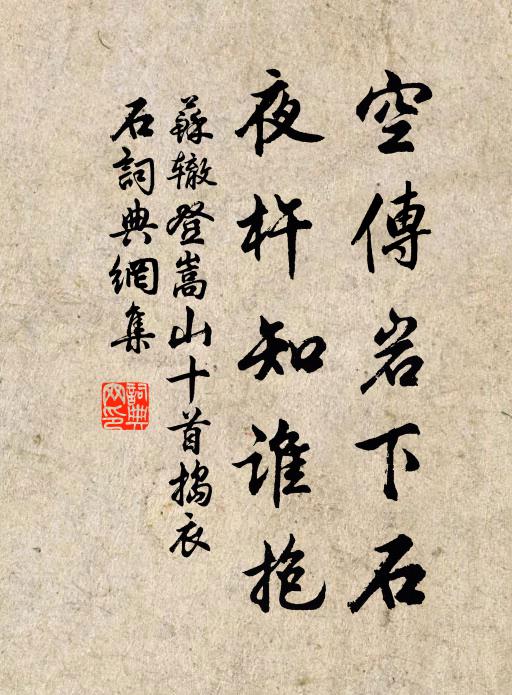 空傳岩下石
夜杵知誰抱
蘇辙登嵩山十首搗衣
石詞典網集
詞典
网印